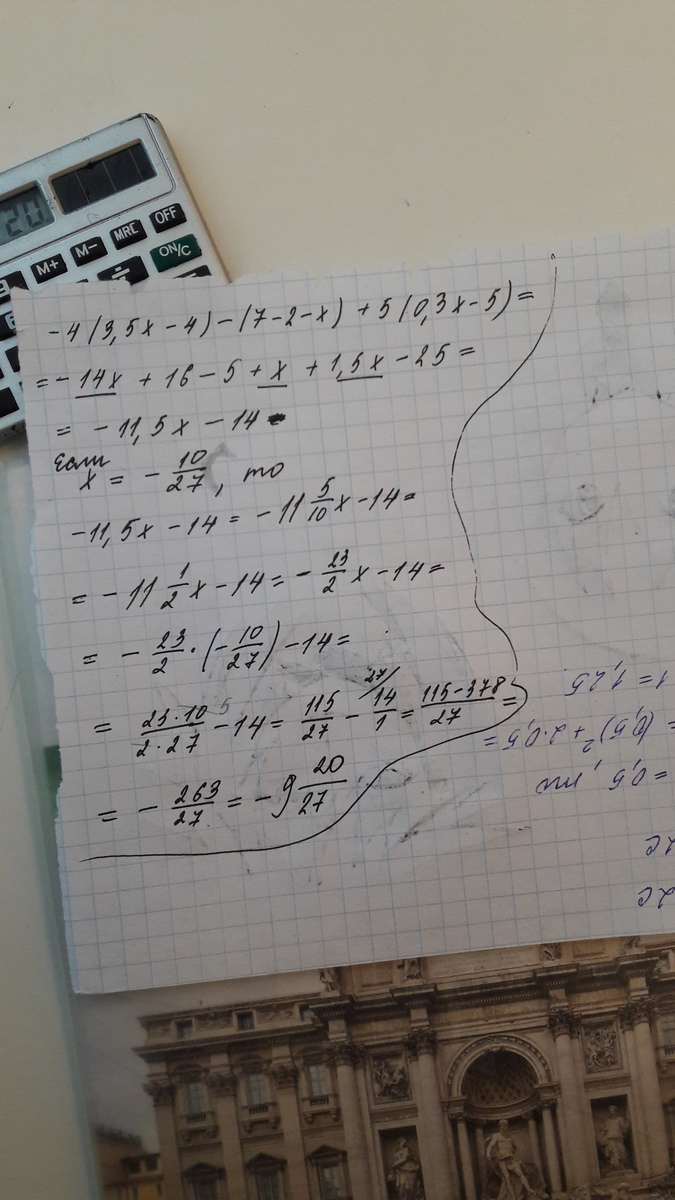 20.
OFF
MRC
M-
M+
ON/C
-4(3,5x-4)-(7-2-x)+5(0,3x-5)=
=-14x+16-5+x+1,5x-25=
= -11,5x-14
Если
x = -10/27, то
-11,5x-14=-11 5/10x-14=
= -11 1/2x-14=-23/2x-14=
= -23/2·(-10/27)-14=
= 23·10 5/2·27-14=115/27-14 27//1=115-378/27=
= -263/27=-9 20/27
1=1,25.
=(0,5)²+2·0,5=
=0,5, то